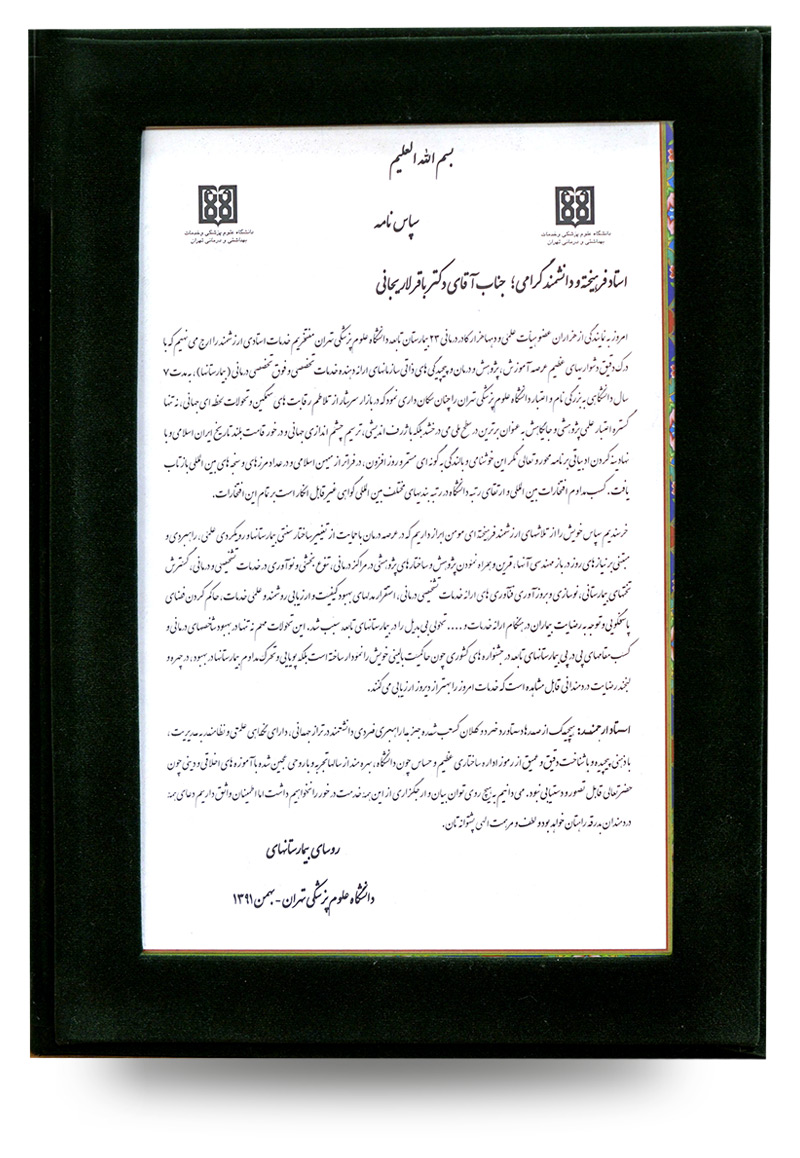 بسم الله العلیم
سپاس نامه
دانشگاه علوم پزشکی و خدمات
بهداشتی و درمانی تهران
دانشگاه علوم پزشکی و خدمات
بهداشتی و درمانی تهران
استاد فرهیخته و دانشمند گرامی؛ جناب آقای دکتر باقر لاریجانی
امروز به نمایندگی از هزاران عضو هیأت علمی و دهها هزار کادر درمانی ۲۳ بیمارستان تابعه دانشگاه علوم پزشکی تهران مفتخریم خدمات استادی ارزشمند را ارج می نهیم که با
درک دقیق دشواریهای عظیم عرصه آموزش، پژوهش و درمان و پیچیدگی های ذاتی سازمانهای ارائه دهنده خدمات تخصصی و فوق تخصصی درمانی (بیمارستانها)، به مدت ۷
سال دانشگاهی به بزرگی نام و اعتبار دانشگاه علوم پزشکی تهران را چنان سکان داری نمود که در بازار سرشار از تلاطم رقابت های سنگین و تحولات لحظه ای جهانی، نه تنها
گستره اعتبار علمی پژوهشی و جایگاهش به عنوان برترین در سطح ملی می درخشد بلکه با ژرف اندیشی، ترسیم چشم اندازی جهانی و در خور قامت بلند تاریخ ایران اسلامی و با
نهادینه کردن ادبیاتی برنامه محور و تعالی نگر این خوشنامی و بالندگی به گونه ای مستمر و روز افزون، در فراتر از میهن اسلامی و در عداد مرزهای و سنجه های بین المللی باز تاب
یافت. کسب مداوم افتخارات بین المللی و ارتقای رتبه دانشگاه در رتبه بندیهای مختلف بین المللی گواهی غیر قابل انکار است بر تمام این افتخارات.
خرسندیم سپاس خویش را از تلاشهای ارزشمند فرهیخته ای مومن ابراز داریم که در عرصه درمان با حمایت از تغییر ساختار سنتی بیمارستانها و رویکردی علمی، راهبردی و
مبتنی بر نیازهای روز در باز مهندسی آنها، قرین و همراه نمودن پژوهش و ساختارهای پژوهشی در مراکز درمانی، تنوع بخشی و نوآوری در خدمات تشخیصی و درمانی، گسترش
تختهای بیمارستانی، نوسازی و بروز آوری فناوری های ارائه خدمات تشخیصی درمانی، استقرار مدلهای بهبود کیفیت و ارزیابی روشمند و علمی خدمات، حاکم کردن فضای
پاسخگویی و توجه به رضایت بیماران در هنگام ارائه خدمات و .... تحولی بی بدیل را در بیمارستانهای تابعه سبب شد. این تحولات مهم نه تنها در بهبود شاخصهای درمانی و
کسب مقامهای پی در پی بیمارستانهای تابعه در جشنواره های کشوری چون حاکمیت بالینی خویش را نمودار ساخته است بلکه پویایی و تحرک مداوم بیمارستانها در بهبود، در چهره و
لبخند رضایت دردمندانی قابل مشاهده است که خدمات امروز را بهتر از دیروز ارزیابی می کنند.
استاد ارجمند: هیچیک از صدها دستاورد خرد و کلان کسب شده جز با راهبری فردی دانشمند در تراز جهانی، دارای نگاهی علمی و نظامند به مدیریت،
با ذهنی پیچیده و با شناخت دقیق و عمیق از رموز اداره ساختاری عظیم و حساس چون دانشگاه، بهره مند از سالها تجربه و با روحی عجین شده با آموزه های اخلاقی و دینی چون
حضرتعالی قابل تصور و دستیابی نبود. می دانیم به هیچ روی توان بیان و ارجگزاری از این همه خدمت در خور را نخواهیم داشت اما اطمینان واثق داریم دعای همه
دردمندان بدرقه راهتان خواهد بود و لطف و مرحمت الهی پشتوانه تان.
روسای بیمارستانهای
دانشگاه علوم پزشکی تهران - بهمن ۱۳۹۱